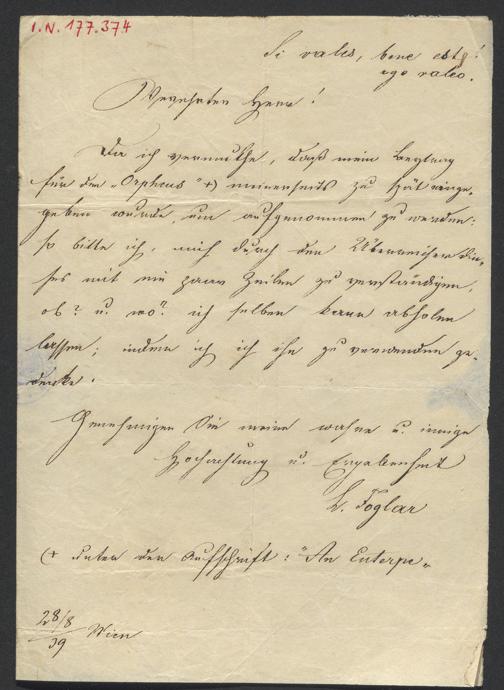 I.N. 177.374
Si vales, bene est!
ego valeo.
Verehrter Herr!
Da ich vermuthe, daß mein Beytrag
für den „Orpheus" +) meinerseits zu spät einge-
geben wurde, um aufgenommen zu werden:
so bitte ich, mich durch den Überreicher die-
ses mit ein paar Zeilen zu verständigen,
ob? u. wo? ich selben kann abholen
lassen; indem ich ich ihn zu verwenden ge-
denke.
Genehmigen Sie meine wahre u. innige
Hochachtung u. Ergebenheit
L. Foglar
(+ unter der Aufschrift: "An Euterpe„
28/8
39 Wien